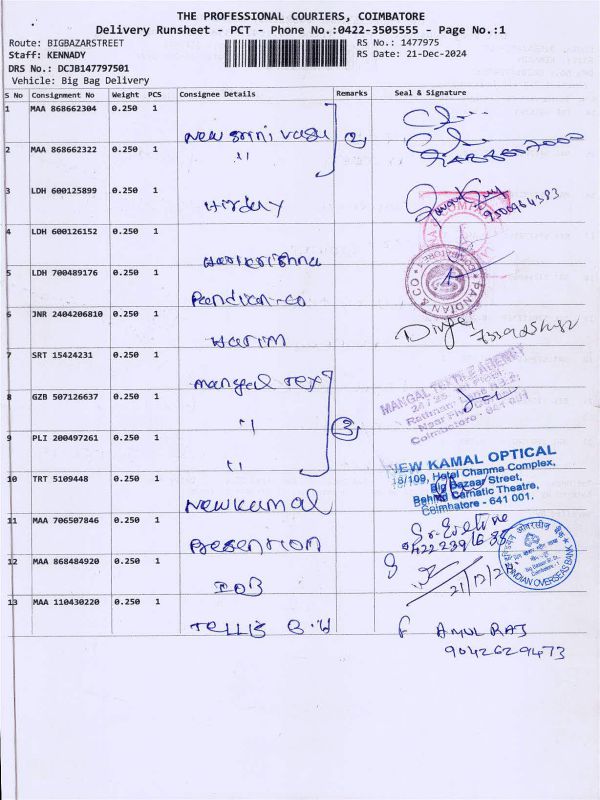 THE PROFESSIONAL COURIERS, COIMBATORE
Delivery Runsheet - PCT - Phone No.:0422-3505555 - Page No.:1
Route: BIGBAZARSTREET
RS No.: 1477975
Staff: KENNADY
RS Date: 21-Dec-2024
DRS No.: DCJB147797501
Vehicle: Big Bag Delivery
S No Consignment No Weight PCS Consignee Details Remarks Seal & Signature
1 MAA 868662304 0.250 1
New Srini vasa
2
2 MAA 868662322 0.250 1
"
3 LDH 600125899 0.250 1
4 LDH 600126152 0.250 1
Harikrishna
5 LDH 700489176 0.250 1
Pandian-co
PANDIAN & CO
6 JNR 2404206810 0.250 1
Harim
7 SRT 15424231 0.250 1
Mangal Tex
MANGAL TEXTILE AGENCY
Coimbatore - 641 001
8 GZB 507126637 0.250 1
"
3
9 PLI 200497261 0.250 1
"
10 TRT 5109448 0.250 1
New kamal
NEW KAMAL OPTICAL
18/109, Hotel Channma Complex,
Big Bazaar Street,
Behind Carnatic Theatre,
Coimbatore - 641 001.
11 MAA 706507846 0.250 1
Presention
12 MAA 868484920 0.250 1
IOB
21/12/24
INDIAN OVERSEAS BANK
13 MAA 110430220 0.250 1
AMUL RAJ
9042629473